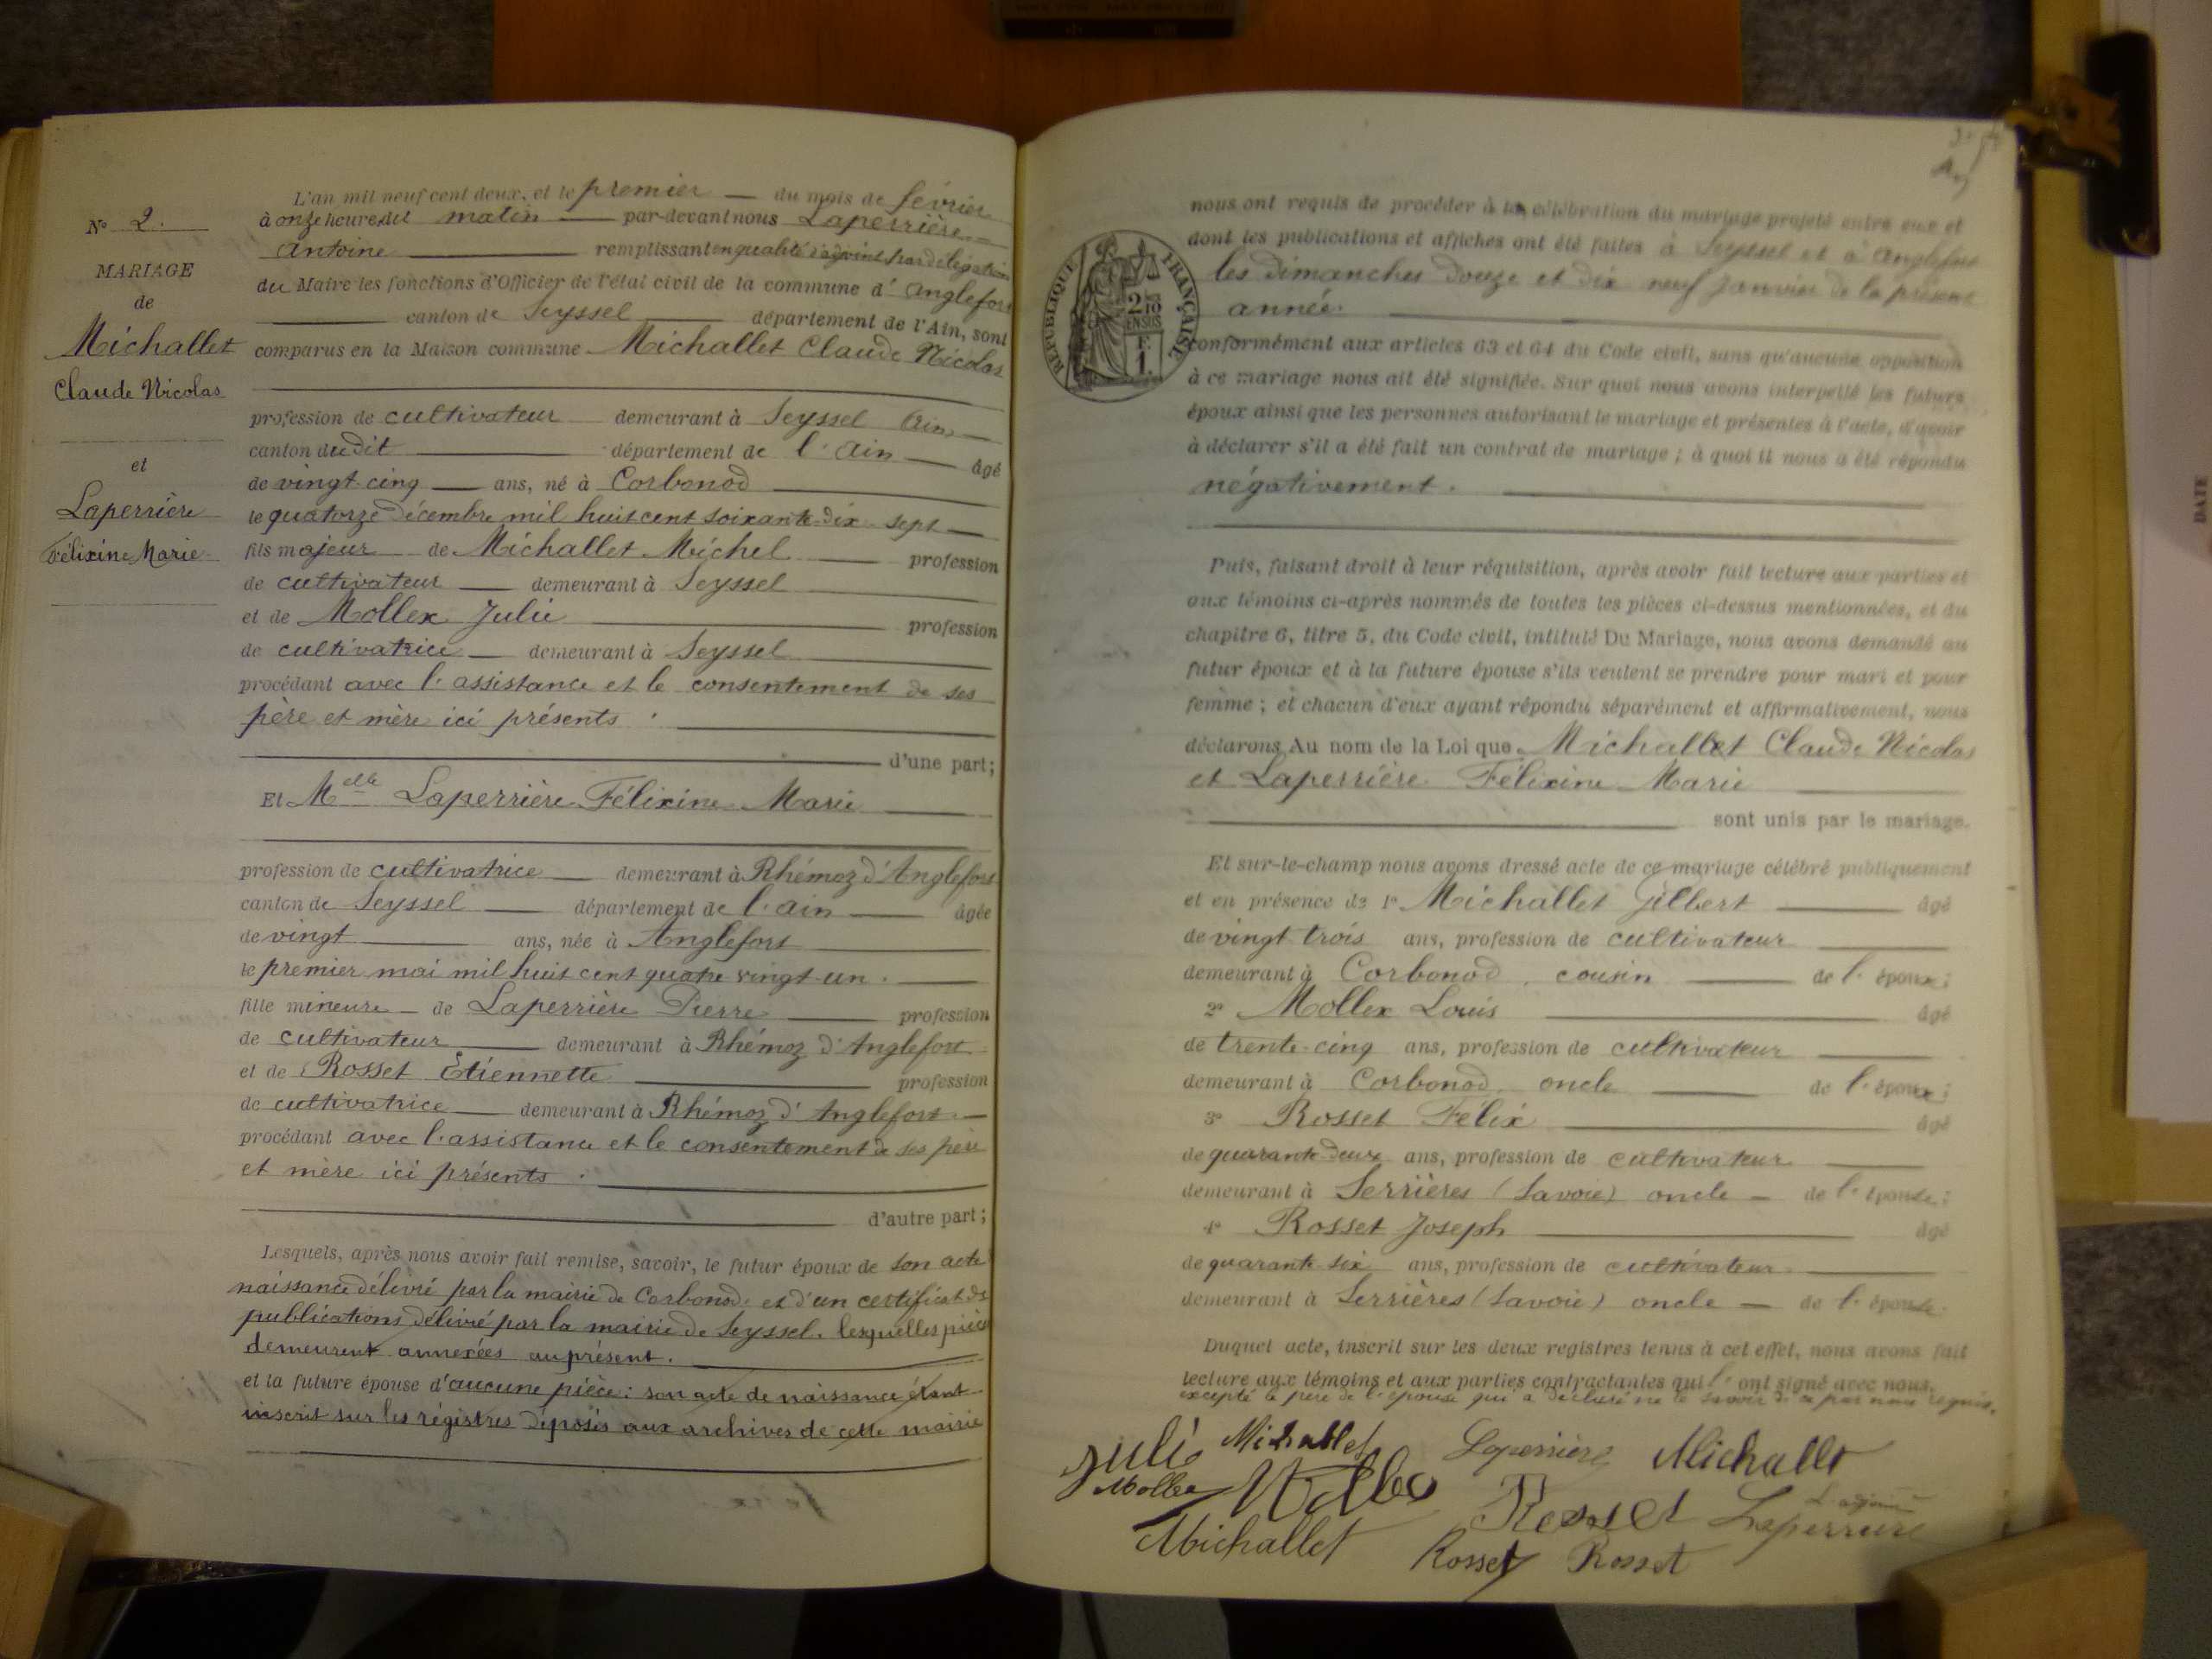 N° 2.
MARIAGE
de
Michallet
Claude Nicolas
et
Laperrière
Félixine Marie
L'an mil neuf cent deux, et le premier du mois de février
à onze heures du matin par-devant nous Laperrière
Antoine remplissant en qualité d'adjoint par délégation
du Maire les fonctions d'Officier de l'état civil de la commune d'Anglefort
canton de Seyssel département de l'Ain, sont
comparus en la Maison commune Michallet Claude Nicolas
profession de cultivateur demeurant à Seyssel Ain
canton dudit département de l'Ain âgé
de vingt-cinq ans, né à Corbonod
le quatorze décembre mil huit cent soixante-dix-sept
fils majeur de Michallet Michel profession
de cultivateur demeurant à Seyssel
et de Mollex Julie profession
de cultivatrice demeurant à Seyssel
procédant avec l'assistance et le consentement de ses
père et mère ici présents.
d'une part;
Et Melle Laperrière Félixine Marie
profession de cultivatrice demeurant à Rhémoz d'Anglefort
canton de Seyssel département de l'ain âgée
de vingt ans, née à Anglefort
le premier mai mil huit cent quatre vingt-un.
fille mineure de Laperrière Pierre profession
de cultivateur demeurant à Rhémoz d'Anglefort
et de Rosset Étiennette profession
de cultivatrice demeurant à Rhémoz d'Anglefort
procédant avec l'assistance et le consentement de ses père
et mère ici présents.
d'autre part;
Lesquels, après nous avoir fait remise, savoir, le futur époux de son acte
naissance délivré par la mairie de Corbonod, et d'un certificat de
publications délivré par la mairie de Seyssel. lesquelles pièces
demeurent annexées au présent.
et la future épouse d'aucune pièce: son acte de naissance étant
inscrit sur les régistres déposés aux archives de cette mairie
RÉPUBLIQUE FRANÇAISE
2/10
EN SUS
F.
1.
nous ont requis de procéder à la célébration du mariage projeté entre eux et
dont les publications et affiches ont été faites à Seyssel et à Anglefort
les dimanches douze et dix neuf janvier de la présente
année.
conformément aux articles 63 et 64 du Code civil, sans qu'aucune opposition
à ce mariage nous ait été signifiée. Sur quoi nous avons interpellé les futurs
époux ainsi que les personnes autorisant le mariage et présentes à l'acte, d'avoir
à déclarer s'il a été fait un contrat de mariage; à quoi il nous a été répondu
négativement.
Puis, faisant droit à leur réquisition, après avoir fait lecture aux parties et
aux témoins ci-après nommés de toutes les pièces ci-dessus mentionnées, et du
chapitre 6, titre 5, du Code civil, intitulé Du Mariage, nous avons demandé au
futur époux et à la future épouse s'ils veulent se prendre pour mari et pour
femme; et chacun d'eux ayant répondu séparément et affirmativement, nous
déclarons Au nom de la Loi que Michallet Claude Nicolas
et Laperrière Félixine Marie
sont unis par le mariage.
Et sur-le-champ nous avons dressé acte de ce mariage célébré publiquement
et en présence de 1° Michallet Gilbert âgé
de vingt trois ans, profession de cultivateur
demeurant à Corbonod, cousin de l'époux;
2° Mollex Louis âgé
de trente-cinq ans, profession de cultivateur
demeurant à Corbonod, oncle de l'époux;
3° Rosset Félix âgé
de quarante-deux ans, profession de cultivateur
demeurant à Serrières (Savoie) oncle de l'épouse;
4° Rosset Joseph âgé
de quarante-six ans, profession de cultivateur
demeurant à Serrières (Savoie) oncle de l'épouse.
Duquel acte, inscrit sur les deux registres tenus à cet effet, nous avons fait
lecture aux témoins et aux parties contractantes qui l' ont signé avec nous,
excepté le père de l'épouse qui a déclaré ne le savoir de ce par nous requis.
Julie Michallet Laperrière Michallet
Mollex
Rosset L'adjoint
Laperrière
Michallet Rosset Rosset
DATE